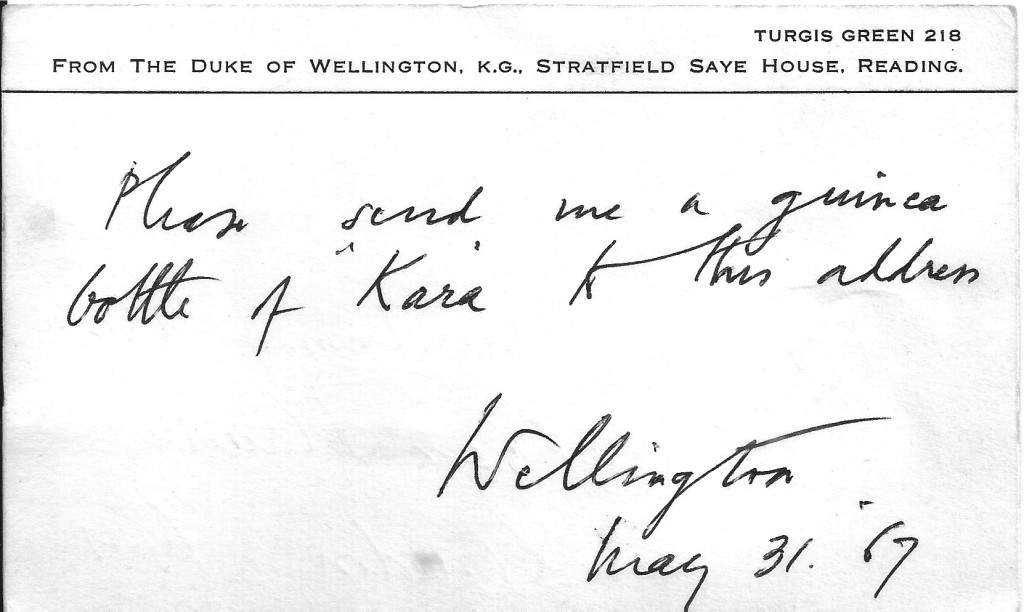 TURGIS GREEN 218
FROM THE DUKE OF WELLINGTON, K.G., STRATFIELD SAYE HOUSE, READING.
Please send me a guinea
bottle of "Kara" to this address
Wellington
May 31. '67